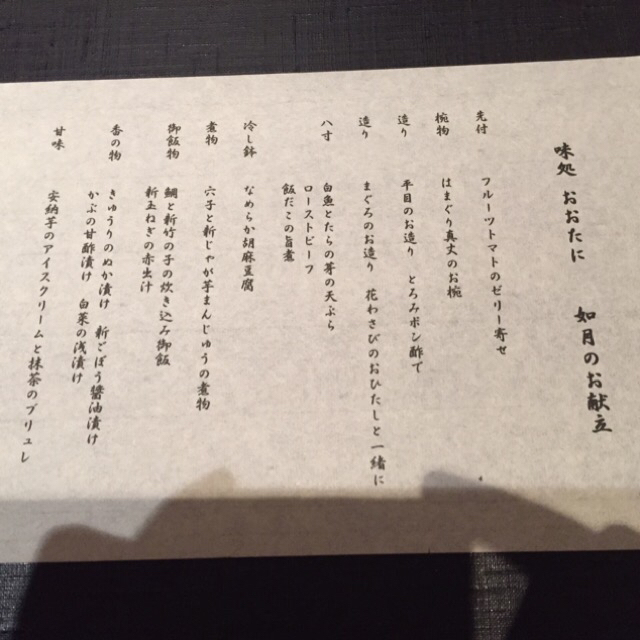 味処 おおたに 如月のお献立
先付 フルーツトマトのゼリー寄せ
椀物 はまぐり真丈のお椀
造り 平目のお造り とろみポン酢で
造り まぐろのお造り 花わさびのおひたしと一緒に
八寸 白魚とたらの芽の天ぷら
ローストビーフ
飯だこの旨煮
冷し鉢 なめらか胡麻豆腐
煮物 穴子と新じゃが芋まんじゅうの煮物
御飯物 鯛と新竹の子の炊き込み御飯
新玉ねぎの赤出汁
香の物 きゅうりのぬか漬け 新ごぼう醤油漬け
かぶの甘酢漬け 白菜の浅漬け
甘味 安納芋のアイスクリームと抹茶のブリュレ